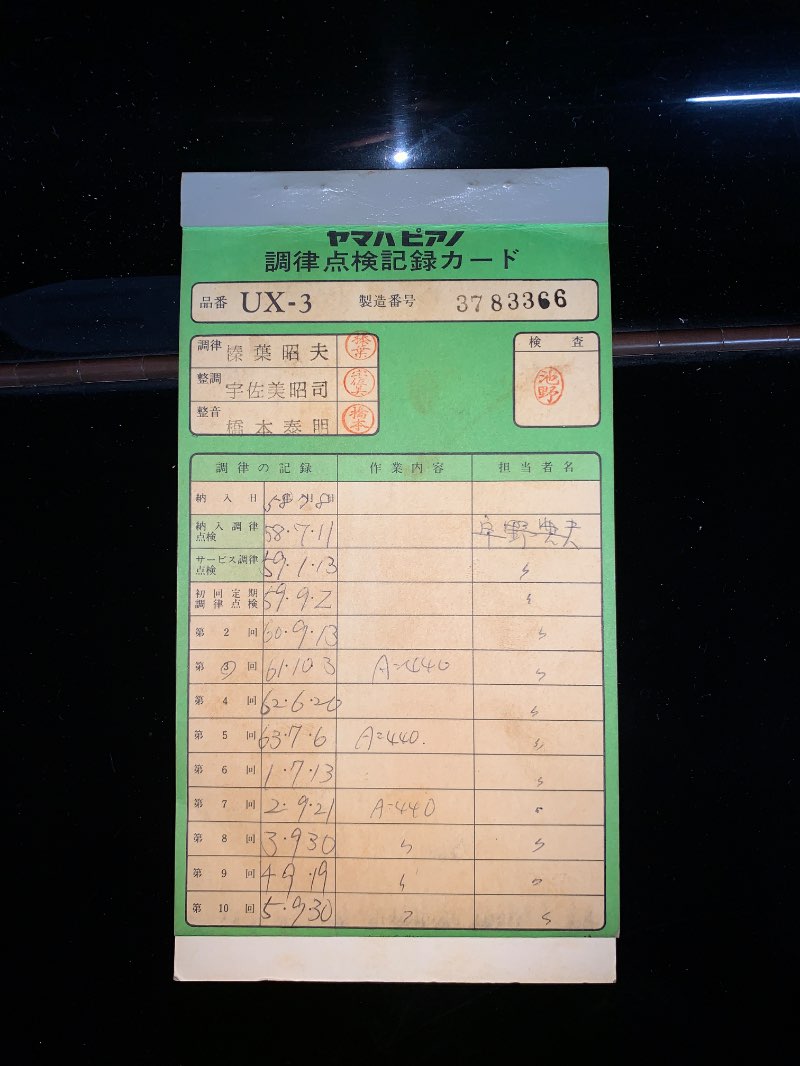 ヤマハピアノ
調律点検記録カード
品番 UX-3 製造番号 3783366
調律 榛葉昭夫 榛葉 検査
整調 宇佐美昭司 池野
整音 橋本泰明 橋本
調律の記録 作業内容 担当者名
納入日 58 7 8
納入調律点検 58.7.11
サービス調律点検 59.1.13 〃
初回定期調律点検 59.9.2 〃
第2回 60.9.13 〃
第3回 61.10.3 A=440 〃
第4回 62.6.20 〃
第5回 63.7.6 A=440. 〃
第6回 1.7.13 〃
第7回 2.9.21 A=440 〃
第8回 3.9.30 〃 〃
第9回 4.9.19 〃 〃
第10回 5.9.30 〃 〃